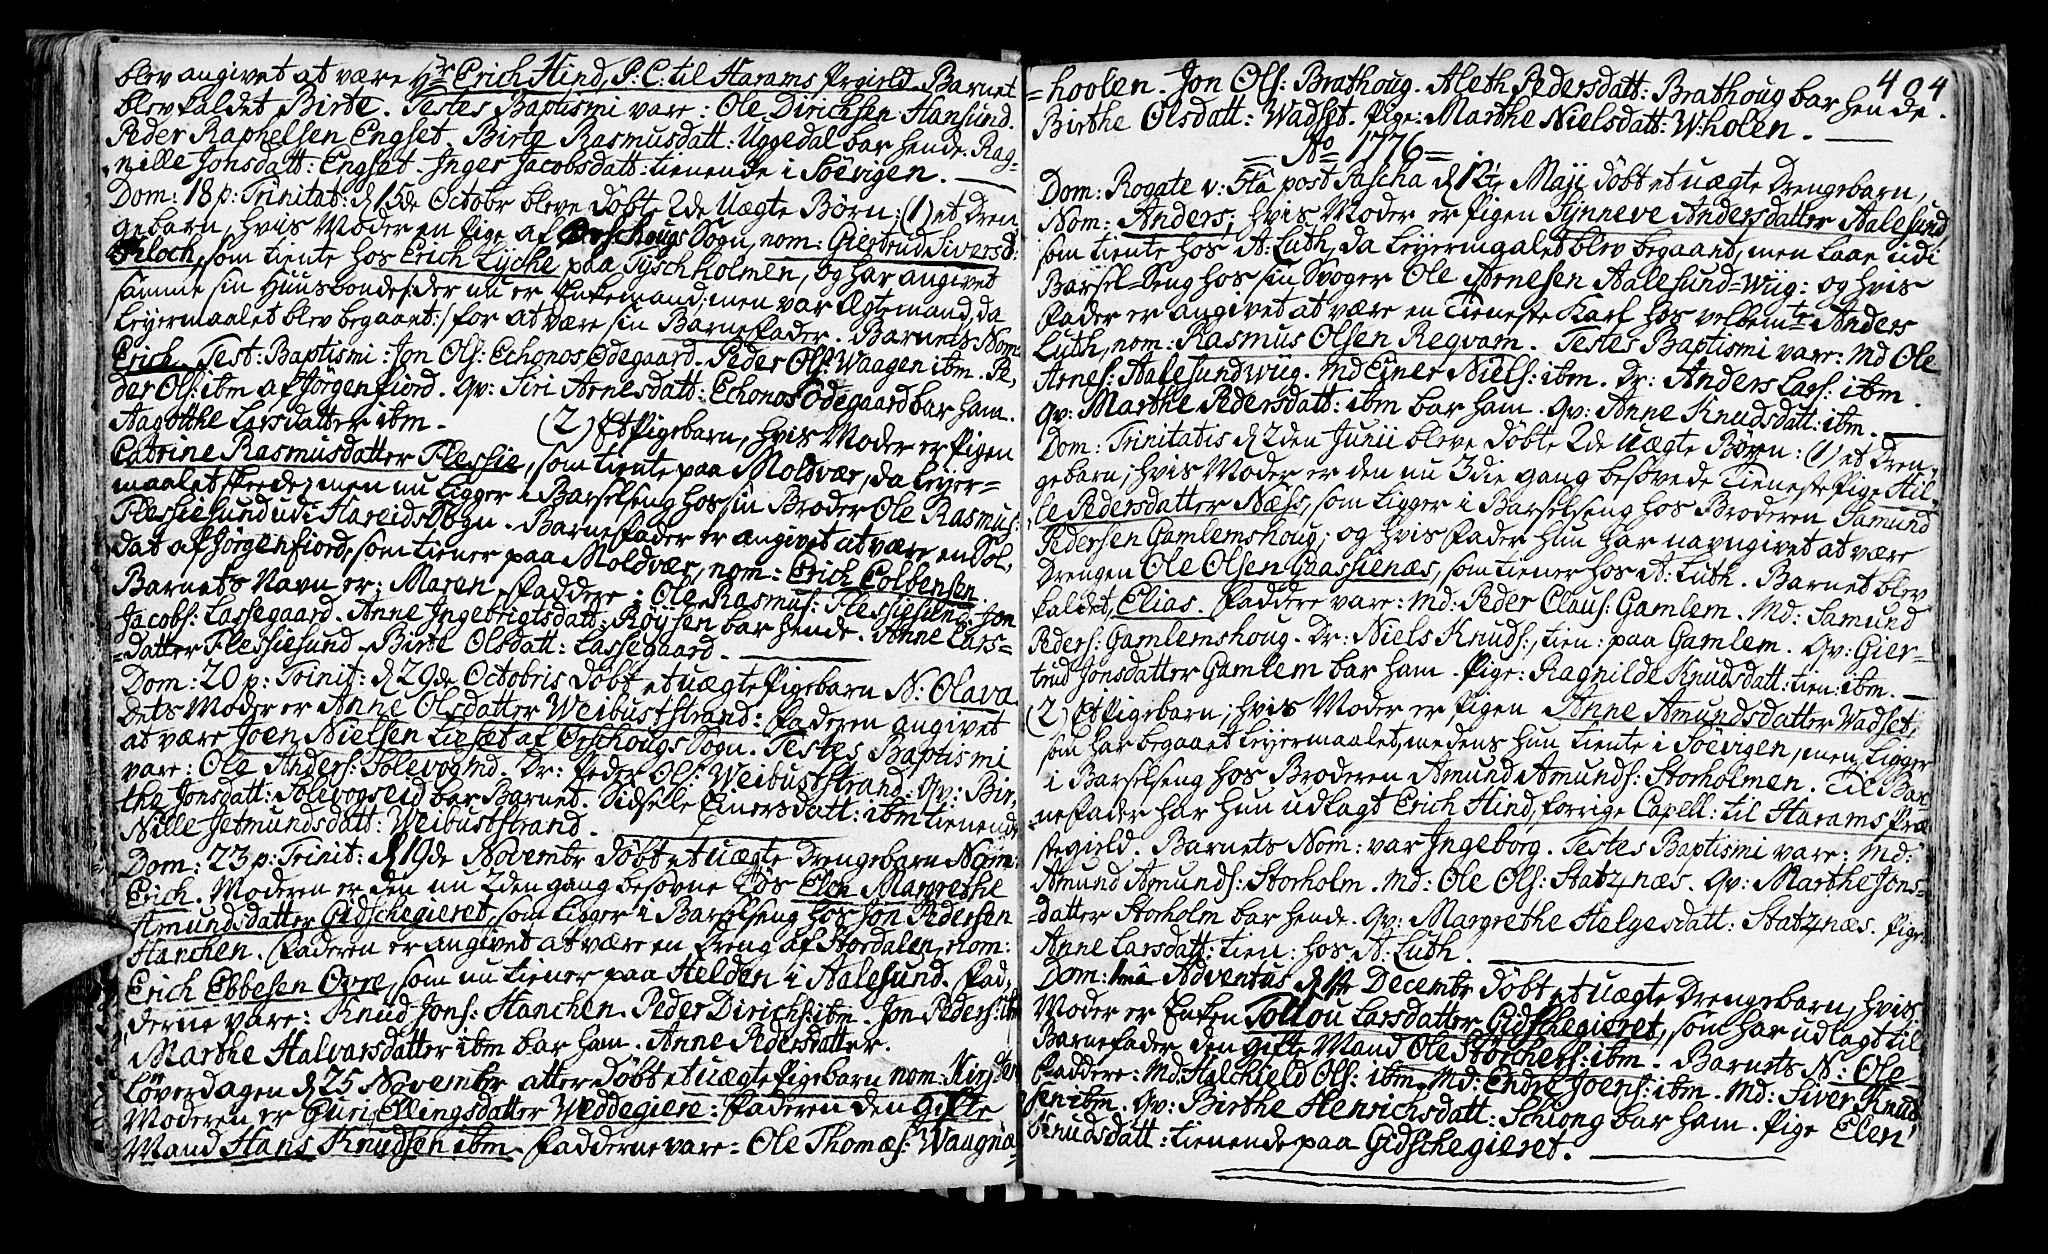 blev angivet at være Hr Erich Hind, P: C: til Harams Prgield. Barnet
blev kaldet Birte. Testes Baptismi vare: Ole Dirichsen Hansund.
Peder Raphelsen Engset. Birte Rasmusdatt: Uggedal bar hende. Rag-
nille Jonsdatt: Engset. Inger Jacobsdatt: tienende i Söevigen.
Dom: 18 p: Trinitat: d 15de Octobr bleve döbte 2de Uægte Börn: (1) et Dren
gebarn, hvis Moder en Pige af Örschougs Sogn, nom: Giertrud Siversd:
Kloch, som tiente hos Erich Lycke paa Tyschholmen, og har angivet
samme sin Huusbonde /: der nu er Enkemand; men var Ægtemand, da
Leyermaalet blev begaaet: / for at være sin Barnefader. Barnets Nom
Erich. Test: Baptismi: Jon Ols: Echonos Ödegaard. Peder Ols: Waagen ibm. Pe,
der Ols: ibm af Jörgenfiord. Qv: Siri Arnesdatt: Echonos Ödegaard bar ham.
Aagothe Larsdatter ibm. (2) Et Pigebarn, hvis Moder er Pigen
Catrine Rasmusdatter Flessie, som tiente paa Moldvær, da Leyer=
maalet skeede; men nu ligger i Barselseng hos sin Broder Ole Rasmus:
Flessiesund udi Hareids Sogn. Barnefader er angivet at være en Sol,
dat af Jörgenfiord, som tiener paa Moldvær, nom: Erich Colbensen.
Barnets Navn er: Maren, Faddere: Ole Rasmus: Flessiesund. Jon
Jacobs: Lassegaard. Anne Ingebrigtsdatt: Röysen bar hende. Anne Lars=
=datter Flessiesund. Birte Olsdatt: Lassegaard.
Dom: 20 p: Trinit: d 29de Octobris döbt et uægte Pigebarn N: Olava
dets Moder er Anne Olsdatter Weibuststrand: Faderen angivet
at være Joen Nielsen Lieset af Örschougs Sogn. Testes Baptismi
vare: Ole Anders: Solevog md. Dr: Peder Ols: Weibuststrand. Qv: Bir,
the Jonsdatt: Solevogseid bar Barnet. Sidselle Einersdatt: ibm tienende
Nille Jetmundsdatt: Weibuststrand.
Dom: 23 p: Trinit: d 19de Novembr döbt et uægte Drengebarn Nom:
Erich. Moderen er den nu 2den gang besovne Tös Elen Margrethe
Amundsdatter Gidschegieret, som ligger i Barselseng hos Jon Pedersen
Hanchen. Faderen er angivet at være en Dreng af Stordalen, nom:
Erich Ebbesen Övre, som nu tiener paa Helden i Aalesund. Fad,
derne vare: Knud Jons: Hanchen. Peder Dirichs: ibm. Jon Peders: ibm
Marthe Halvarsdatter ibm bar ham. Anne Pedersdatter.
Löverdagen d 25 Novembr atter döbt et uægte Pigebarn nom: Kirsten
Moderen er Guri Ellingsdatter Weddegiere: Faderen den gifte
Mand Hans Knudsen ibm. Fadderne vare: Ole Thomæs: Waagnæ
404
=hoolen. Jon Ols: Brathoug. Aleth Pedersdatt: Brathoug bar hende.
Birthe Olsdatt: Wadset. Pige: Marthe Nielsdatt: W:holen.
= Ao 1776 =
Dom: Rogate v: 5ta post Pascha d 12te Maji döbt et uægte Drengebarn,
Nom: Anders; hvis Moder er Pigen Synneve Andersdatter Aalesund,
som tiente hos A: Luth, da Leyermaalet blev begaaet, men laae udi
Barsel-Seng hos sin Svoger Ole Arnesen Aalesund=Wiig: og hvis
Fader er angivet at være en Tieneste Karl hos velbemte Anders
Luth, nom: Rasmus Olsen Reqvam. Testes Baptismi vare: Md Ole
Arnes: Aalesundwiig. Md Einer Niels: ibm. Dr: Anders Lars: ibm.
Qv: Marthe Pedersdatt: ibm bar ham. Qv: Anne Knudsdatt: ibm.
Dom: Trinitatis d 2den Junii bleve döbte 2de Uægte Börn: (1) et Dren,
gebarn; hvis Moder er den nu 3die gang besovede Tieneste Pige Hil-
le Pedersdatter Næss, som ligger i Barselseng hos Broderen Samund
Pedersen Gamlemshoug; og hvis Fader hun har navngivet at være
Drengen Ole Olsen Gaassienæs, som tiener hos A: Luth. Barnet blev
kaldet, Elias. Faddere vare: Md: Peder Claus: Gamlem. Md: Samund
Peders: Gamlemshoug. Dr: Niels Knuds:, tien: paa Gamlem. Qv: Gier-
trud Jonsdatter Gamlem bar ham. Pige: Ragnilde Knudsdatt: tien: ibm.
(2) Et Pigebarn; hvis Moder er Pigen Anne Amundsdatter Wadset,
som har begaaet Leyermaalet, medens hun tiente i Söevigen, men ligger
i Barselseng hos Broderen Amund Amunds: Storholmen. Til Bar,
nefader har hun udlagt Erich Hind, forrige Capell: til Harams Præ
stegield. Barnets Nom: var Ingeborg. Testes Baptismi vare: Md:
Amund Amunds: Storholm. Md: Ole Ols: Statznæs. Qv: Marthe Jons-
=datter Storholm bar hende. Qv: Margrethe Helgesdatt: Statznæs. Pige:
Anne Larsdatt: tien: hos A: Luth.
Dom: 1ma Adventus d 1ste Decembr döbt et uægte Drengebarn, hvis
Moder er Enken Tollou Larsdatter Gidschegieret, som har udlagt til
Barnefader den gifte Mand Ole Storchers: ibm. Barnets N: Ole
Faddere: Md Halchield Ols: ibm. Md: Endre Joens: ibm. Md: Siver Knud
sen ibm. Qv: Birthe Henrichsdatt: Schiong bar ham. Pige Elen
Knudsdatt: tienende paa Gidschegieret.